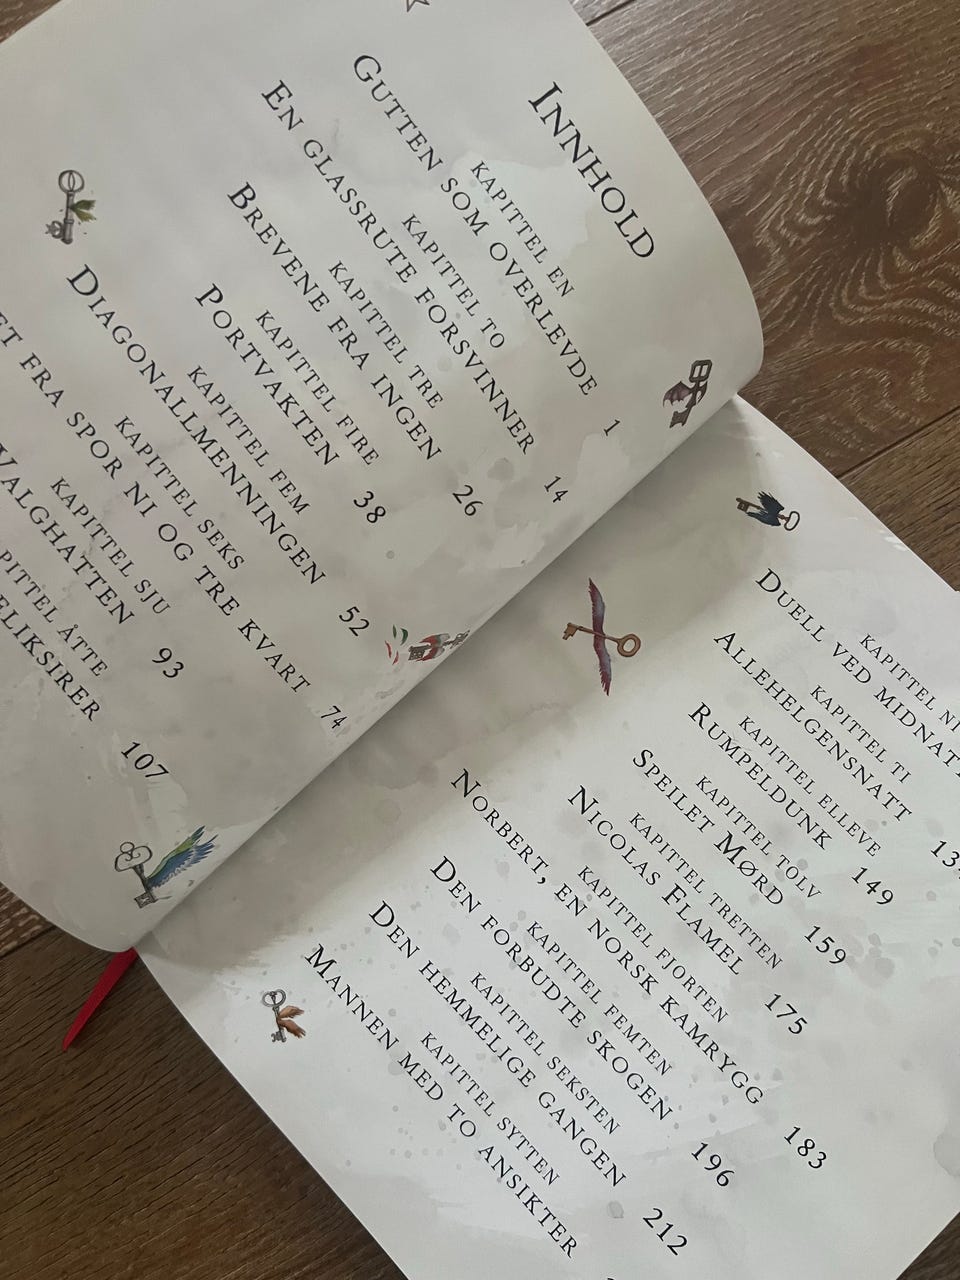 INNHOLD
KAPITTEL EN
GUTTEN SOM OVERLEVDE 1
KAPITTEL TO
EN GLASSRUTE FORSVINNER 14
KAPITTEL TRE
BREVENE FRA INGEN 26
KAPITTEL FIRE
PORTVAKTEN 38
KAPITTEL FEM
DIAGONALLMENNINGEN 52
KAPITTEL SEKS
FRA SPOR NI OG TRE KVART 74
KAPITTEL SJU
VALGHATTEN 93
ÅTTE
ELIKSIRER 107
KAPITTEL NI
DUELL VED MIDNATT
KAPITTEL TI
ALLEHELGENSNATT
KAPITTEL ELLEVE
RUMPELDUNK 149
KAPITTEL TOLV
SPEILET MØRD 159
KAPITTEL TRETTEN
NICOLAS FLAMEL 175
KAPITTEL FJORTEN
NORBERT, EN NORSK KAMRYGG 183
KAPITTEL FEMTEN
DEN FORBUDTE SKOGEN 196
KAPITTEL SEKSTEN
DEN HEMMELIGE GANGEN 212
KAPITTEL SYTTEN
MANNEN MED TO ANSIKTER